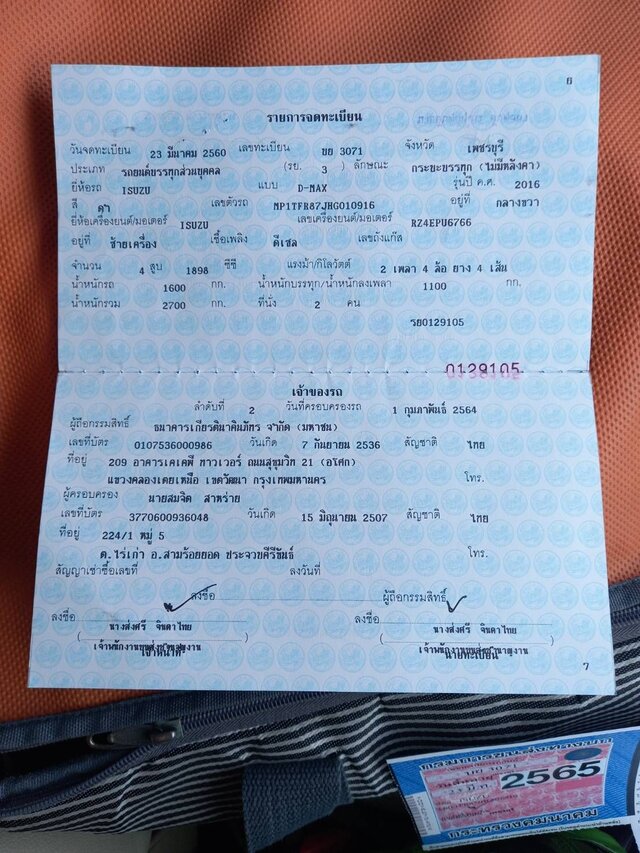 6
รายการจดทะเบียน
วันจดทะเบียน 23 มีนาคม 2560 เลขทะเบียน ขย 3071 จังหวัด เพชรบุรี
ประเภท รถยนต์บรรทุกส่วนบุคคล (รย. 3 ) ลักษณะ กระบะบรรทุก (ไม่มีหลังคา)
ยี่ห้อรถ ISUZU แบบ D-MAX รุ่นปี ค.ศ. 2016
สี ดำ เลขตัวรถ MP1TFR87JHG010916 อยู่ที่ กลางขวา
ยี่ห้อเครื่องยนต์/มอเตอร์ ISUZU เลขเครื่องยนต์/มอเตอร์ RZ4EPU6766
อยู่ที่ ซ้ายเครื่อง เชื้อเพลิง ดีเซล เลขถังแก๊ส
จำนวน 4 สูบ 1898 ซีซี แรงม้า/กิโลวัตต์ 2 เพลา 4 ล้อ ยาง 4 เส้น
น้ำหนักรถ 1600 กก. น้ำหนักบรรทุก/น้ำหนักลงเพลา 1100 กก.
น้ำหนักรวม 2700 กก. ที่นั่ง 2 คน
รย0129105
0129105
เจ้าของรถ
ลำดับที่ 2 วันที่ครอบครองรถ 1 กุมภาพันธ์ 2564
ผู้ถือกรรมสิทธิ์ ธนาคารเกียรตินาคินภัทร จำกัด (มหาชน)
เลขที่บัตร 0107536000986 วันเกิด 7 กันยายน 2536 สัญชาติ ไทย
ที่อยู่ 209 อาคารเคเคพี ทาวเวอร์ ถนนสุขุมวิท 21 (อโศก)
แขวงคลองเตยเหนือ เขตวัฒนา กรุงเทพมหานคร โทร.
ผู้ครอบครอง นายสมจิต สาหร่าย
เลขที่บัตร 3770600936048 วันเกิด 15 มิถุนายน 2507 สัญชาติ ไทย
ที่อยู่ 224/1 หมู่ 5
ต.ไร่เก่า อ.สามร้อยยอด ประจวบคีรีขันธ์ โทร.
สัญญาเช่าซื้อเลขที่ ลงวันที่
ลงชื่อ ผู้ถือกรรมสิทธิ์
ลงชื่อ นางส่งศรี จินดาไทย ลงชื่อ นางส่งศรี จินดาไทย
เจ้าหน้าที่ นายทะเบียน
7
กรมการขนส่งทางบก
2565
กระทรวงคมนาคม